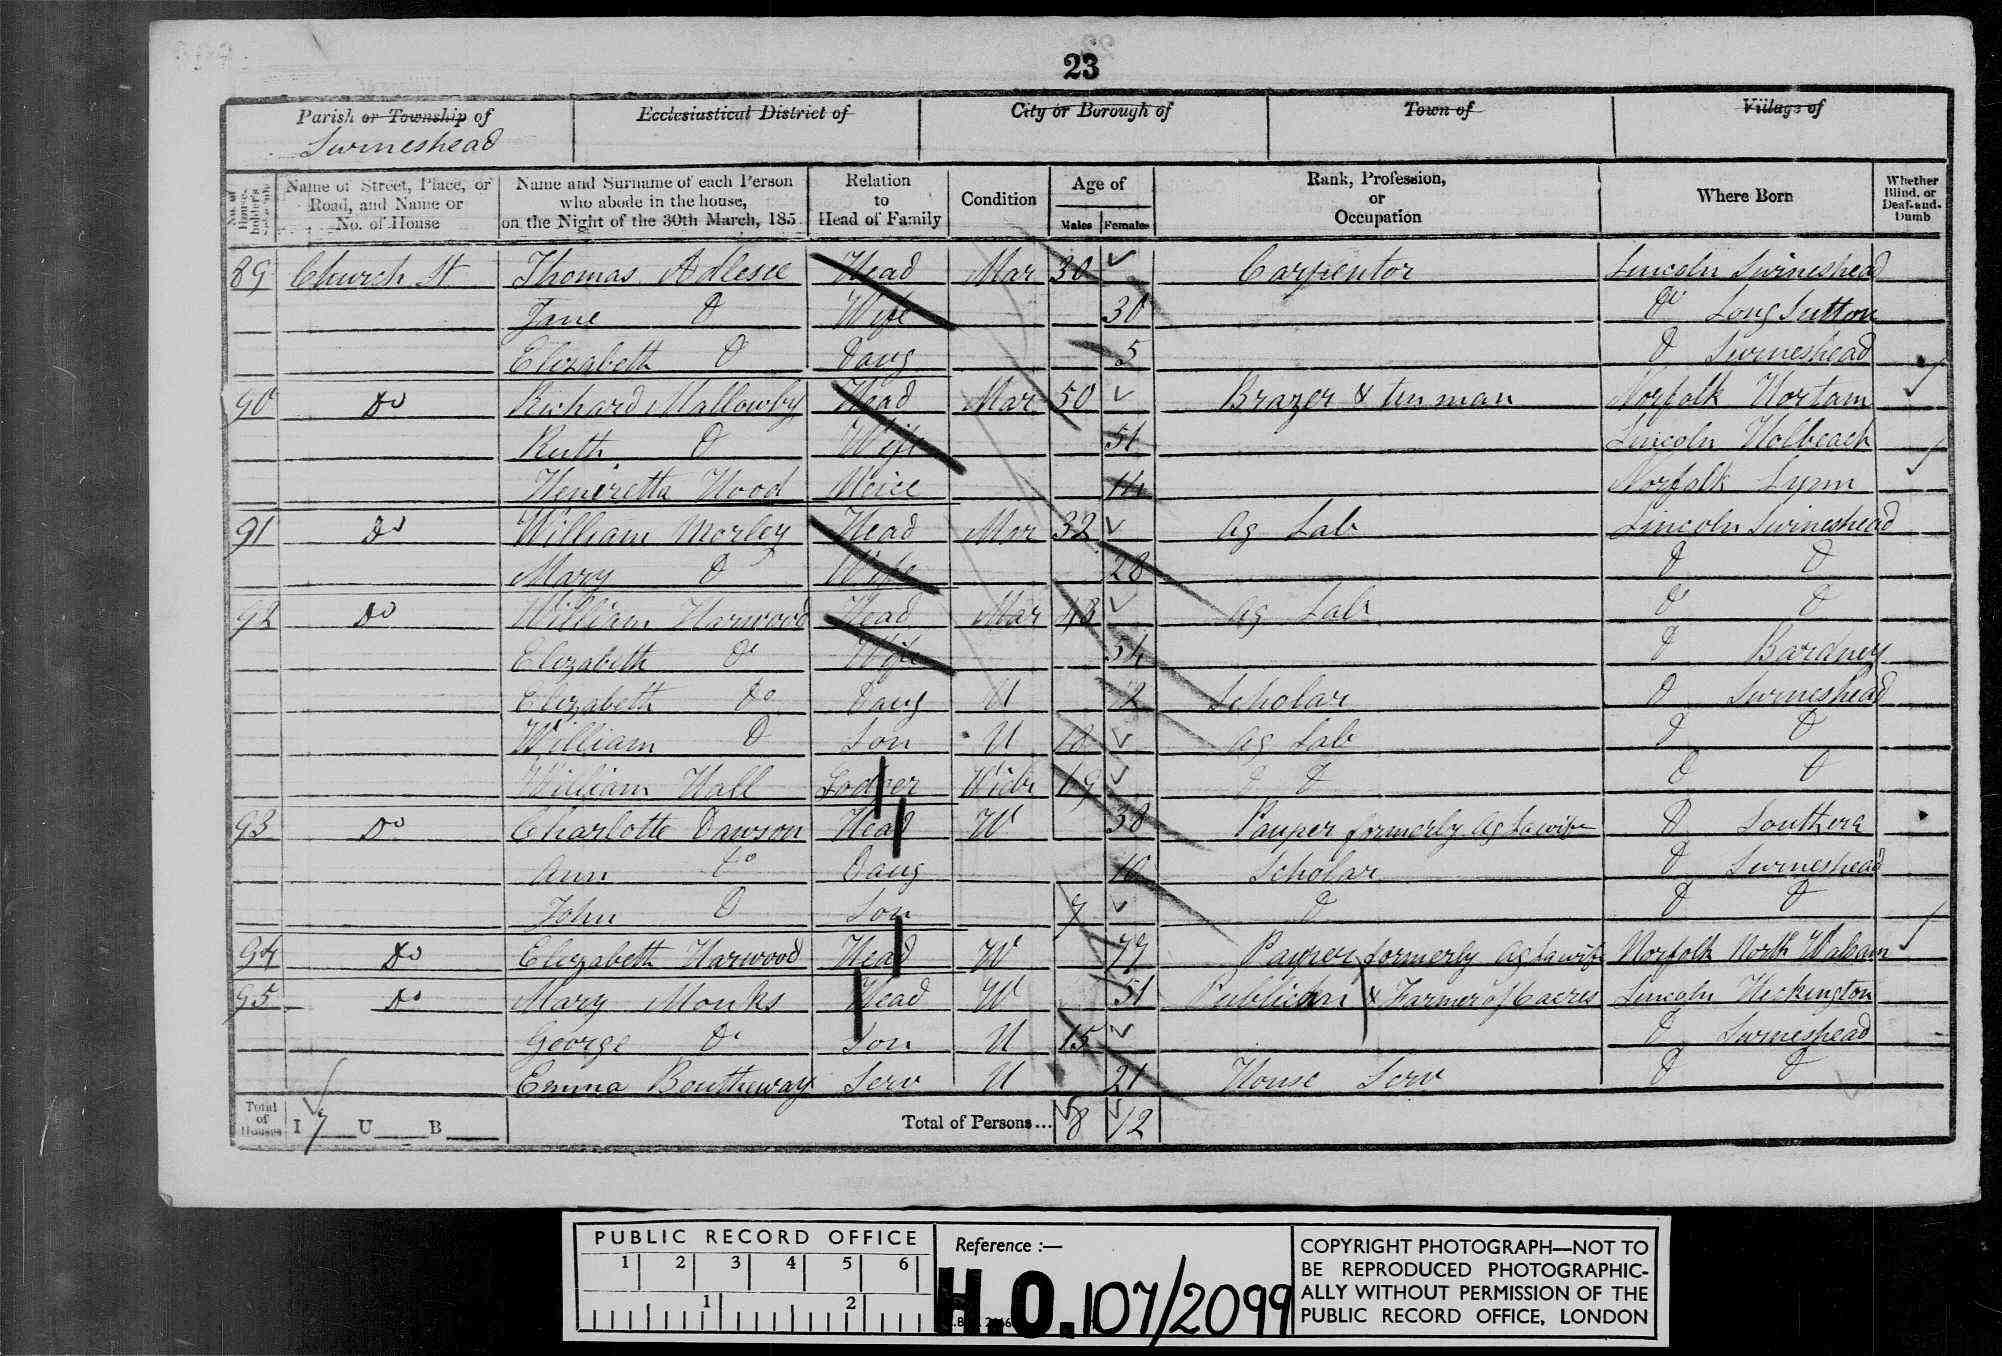 23
Parish or Township of
Swineshead
Ecclesiastical District of
City or Borough of
Town of
Village of
No. of House-holder's
Name of Street, Place, or Road, and Name or No. of House
Name and Surname of each Person who abode in the house, on the Night of the 30th March, 185
Relation to Head of Family
Condition
Age of
Males Females
Rank, Profession, or Occupation
Where Born
Whether Blind, or Deaf-and-Dumb
89 Church St Thomas Adlesee Head Mar 30 Carpentor Lincoln Swineshead
Jane D Wife 30 Do Long Sutton
Elizabeth D Daug 5 D Swineshead
90 Do Richard Mallowby Head Mar 50 Brazer & tinman Norfolk
Ruth D Wife 51 Lincoln Holbeach
Heneretta Wood Neice 14 Norfolk Lynn
91 Do William Morley Head Mar 32 Ag Lab Lincoln Swineshead
Mary D Wife 28 D D
92 Do William Harwood Head Mar 43 Ag Lab D D
Elizabeth Do Wife 54 D Bardney
Elizabeth Do Daug U 12 Scholar D Swineshead
William D Son U Ag Lab D D
William Hall Lodger Widr D D D D
93 Do Charlotte Dawson Head W 38 Pauper formerly Ag La wife D
Ann Do Daug 10 Scholar D Swineshead
John D Son 7 D D D
94 Do Elizabeth Harwood Head W 77 Pauper formerly Ag La wife Norfolk North Walsham
95 Do Mary Monks Head W 51 Publican & Farmer of 6 acres Lincoln Heckington
George Do Son U 15 D Swineshead
Emma Bouthway Serv U 21 House Serv D D
Total of Houses I 7 U B Total of Persons... 8 12
PUBLIC RECORD OFFICE
1 2 3 4 5 6
1 2
Reference :—
H.O. 107/2099
COPYRIGHT PHOTOGRAPH—NOT TO
BE REPRODUCED PHOTOGRAPHIC-
ALLY WITHOUT PERMISSION OF THE
PUBLIC RECORD OFFICE, LONDON